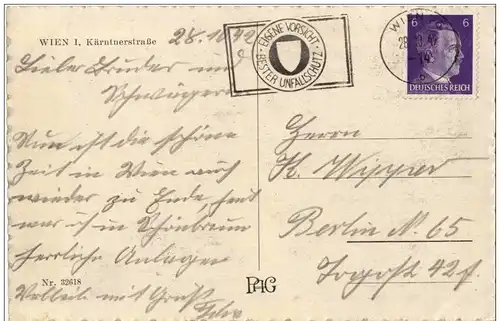 WIEN I, Kärntnerstraße
28.10.42
Lieber Bruder und
Schwägerin
Nun ist die schöne
Zeit in Wien auch
wieder zu Ende, heut
war ich in Schönbrunn
herrliche Anlagen
Nr. 32618
mit Gruß
EIGENE VORSICHT
BESTER UNFALLSCHUTZ
WIEN
6 6
DEUTSCHES REICH
Herrn
H. Wipper
Berlin N. 65
42
PAG